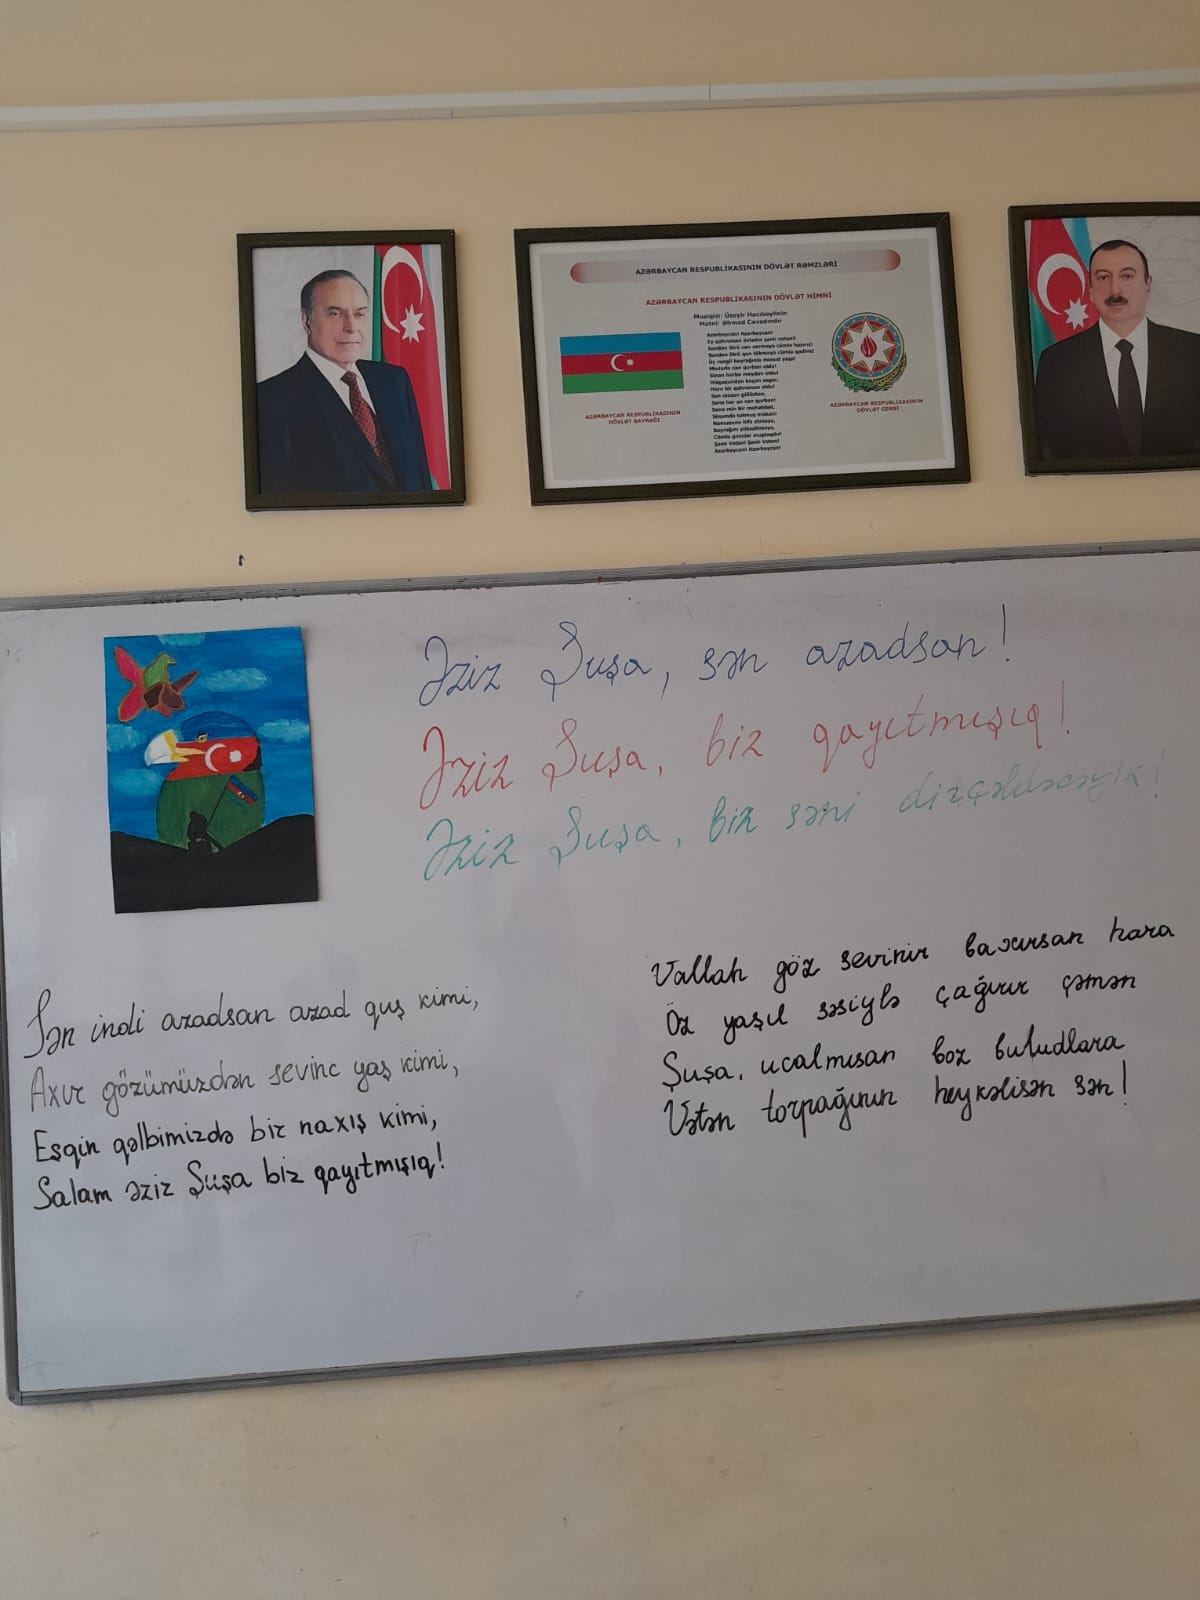 AZƏRBAYCAN RESPUBLİKASININ DÖVLƏT RƏMZLƏRİ
AZƏRBAYCAN RESPUBLİKASININ DÖVLƏT HİMNİ
Musiqisi: Üzeyir Hacıbəylinin
Mətni: Əhməd Cavadındır
Azərbaycan! Azərbaycan!
Ey qəhrəman övladın şanlı vətəni!
Səndən ötrü can verməyə cümlə hazırız!
Səndən ötrü qan tökməyə cümlə qadiriz!
Üç rəngli bayrağınla məsud yaşa!
Minlərlə can qurban oldu!
Sinən hərbə meydan oldu!
Hüququndan keçən əsgər,
Hərə bir qəhrəman oldu!
Sən olasan gülüstan,
Sənə hər an can qurban!
Sənə min bir məhəbbət,
Sinəmdə tutmuş məkan!
Namusunu hifz etməyə,
Bayrağını yüksəltməyə,
Cümlə gənclər müştaqdır!
Şanlı Vətən! Şanlı Vətən!
Azərbaycan! Azərbaycan!
AZƏRBAYCAN RESPUBLİKASININ
DÖVLƏT BAYRAĞI
AZƏRBAYCAN RESPUBLİKASININ
DÖVLƏT GERBİ
Əziz Şuşa, sən azadsan!
Əziz Şuşa, biz qayıtmışıq!
Əziz Şuşa, biz səni dirçəldəcəyik!
Sən indi azadsan azad quş kimi,
Axır gözümüzdən sevinc yaş kimi,
Eşqin qəlbimizdə bir naxış kimi,
Salam əziz Şuşa biz qayıtmışıq!
Vallah göz sevinir baxırsan hara
Öz yaşıl səsiylə çağırır çəmən
Şuşa, ucalmısan boz buludlara
Vətən torpağının heykəlisən sən!